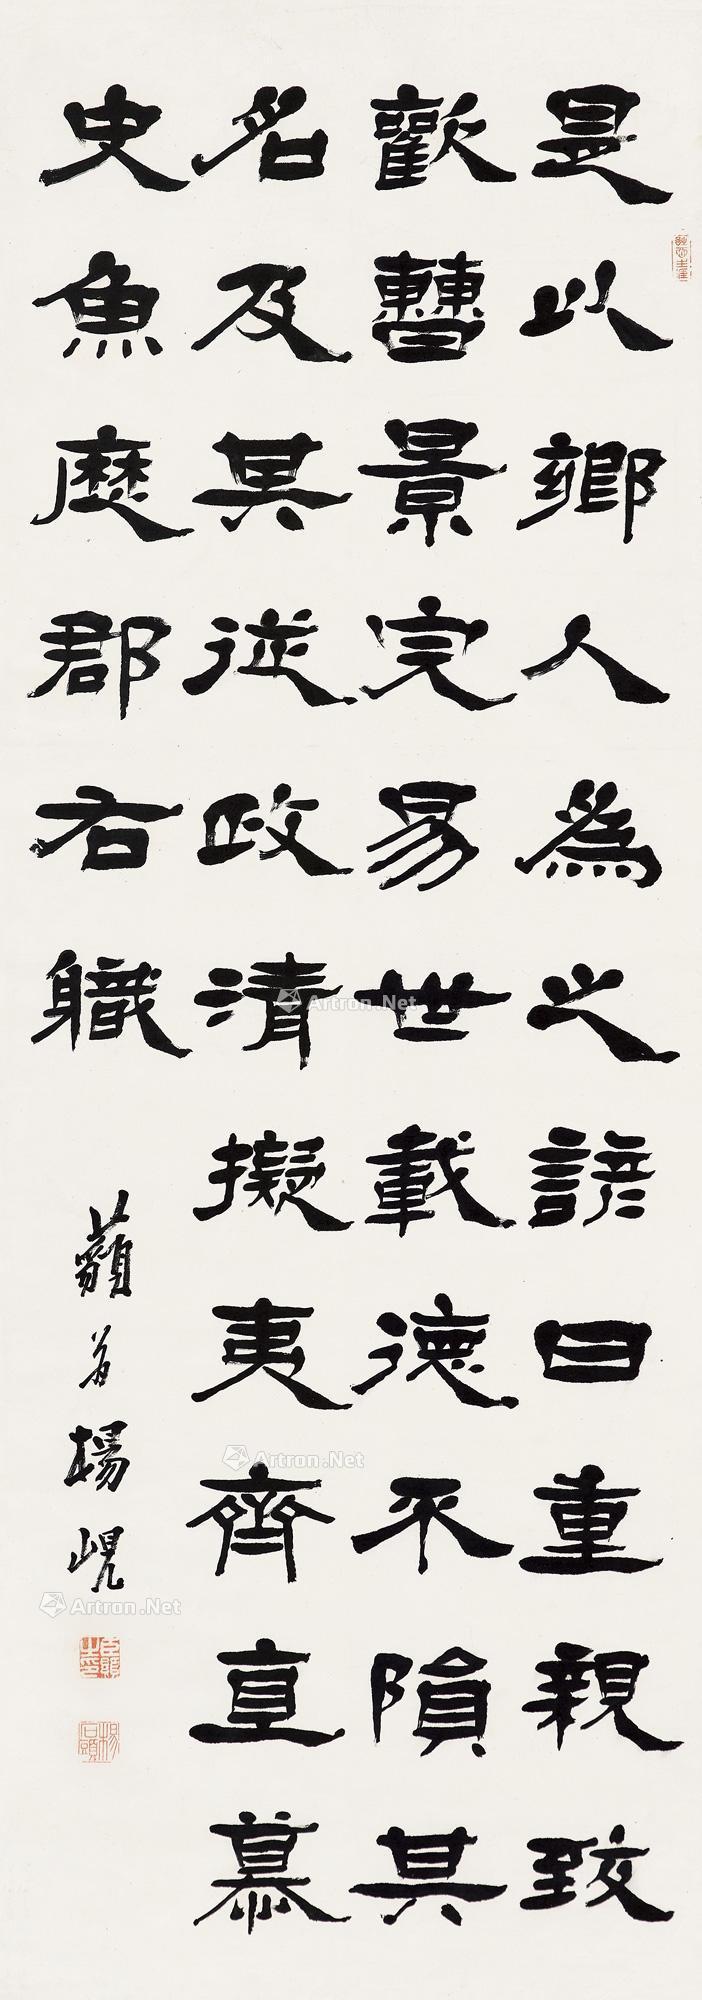 是以鄉人為之諺曰重親致
歡曹景完易世載德不隕其
名及其從政清擬夷齊直慕
史魚歷郡右職
藐翁楊峴
Artron.Net
Artron.Net
Artron.Net